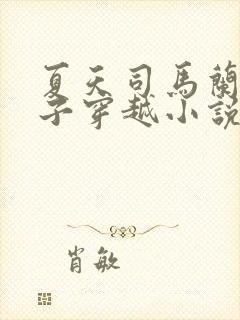 夏天司馬蘭
子穿越小說
肖敏